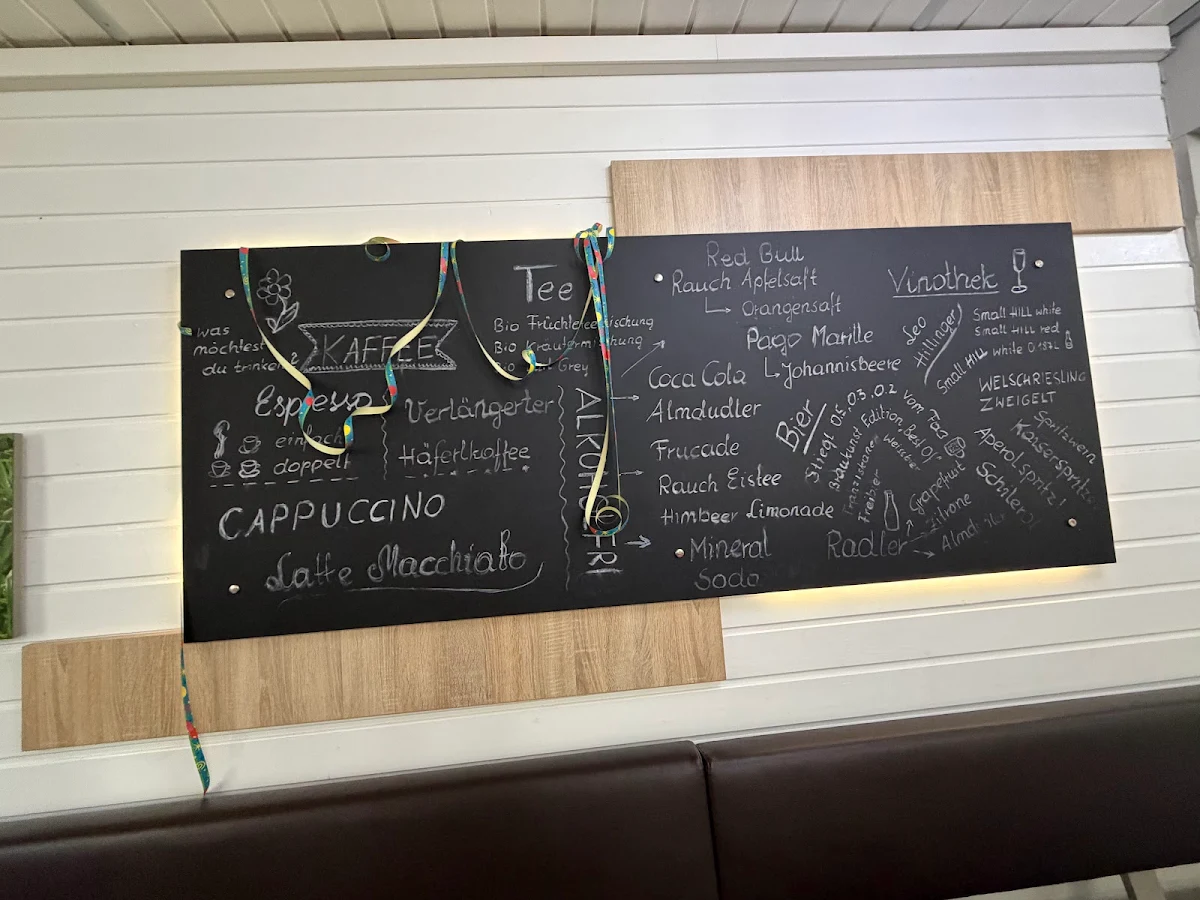 was
möchtest
du trinken?
KAFFEE
Espresso
einfach
doppelt
Verlängerter
Häferlkaffee
CAPPUCCINO
Latte Macchiato
Tee
Bio Früchteteemischung
Bio Kräutermischung
Bio Earl Grey
ALKOHOLFREI
Red Bull
Rauch Apfelsaft
Orangensaft
Pago Marille
Johannisbeere
Coca Cola
Almdudler
Frucade
Rauch Eistee
Himbeer Limonade
Mineral
Soda
Vinothek
Leo
Hillinger
Small HILL
Small HILL white
Small HILL red
white 0,187L
WELSCHRIESLING
ZWEIGELT
Spritzwein
Kaiserspritzer
Aperolspritz!
Bier
Stiegl 0.5, 0.3, 0.2 vom Fass
Braukunst Edition Best Of
Franziskaner
Weissbier
Freibier
Radler
Grapefruit
Zitrone
Almdudler